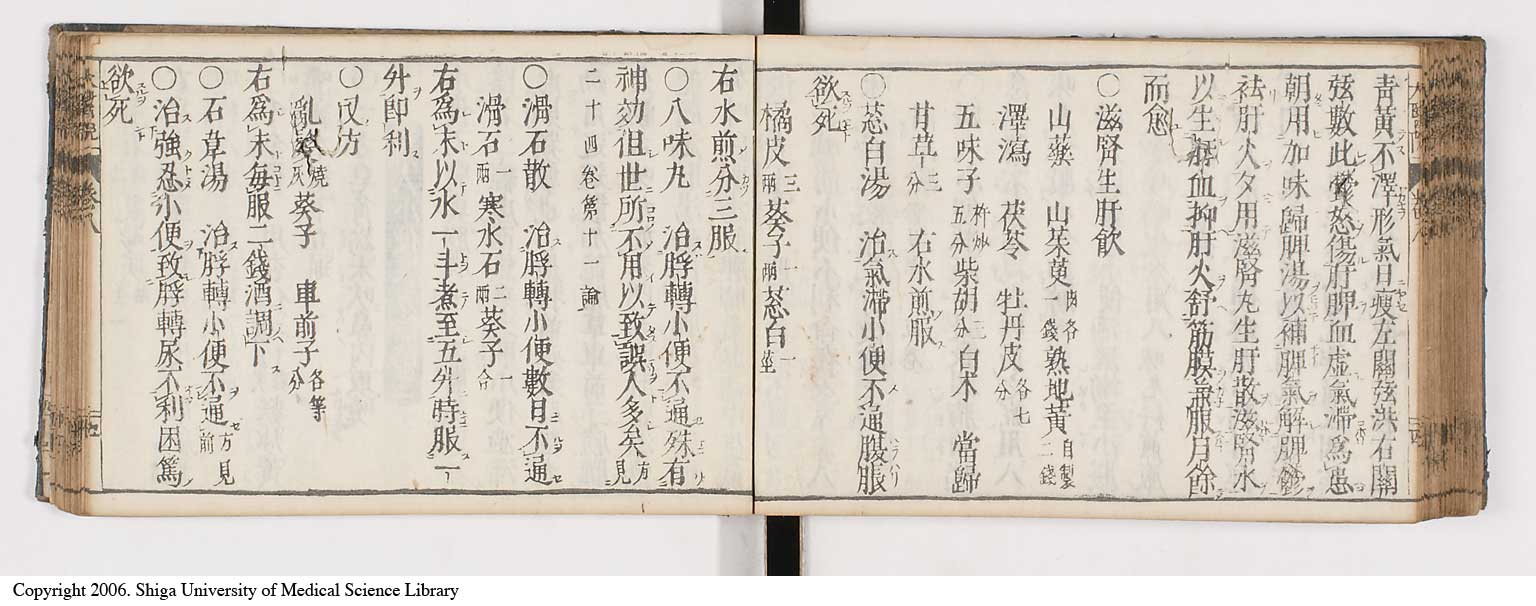 青黃不澤形氣日瘦左關弦洪右關
弦數此鬱怒傷肝脾血虛氣滯為患
朝用加味歸脾湯以補脾氣解脾鬱
袪肝火夕用滋腎丸生肝散滋腎水
以生肝血抑肝火舒筋膜兼服月餘
而愈
○滋腎生肝飲
山藥 山茱萸肉各一錢熟地黃自製二錢
澤瀉 茯苓 牡丹皮各七分
五味子杵炒五分柴胡二分白朮 當歸
甘草三分 右水煎服
○葱白湯 治氣滯小便不通腹脹
欲死
橘皮三兩葵子一兩葱白一莖
右水煎分三服
○八味丸 治脬轉小便不通殊有
神効但世所不用以致誤人多矣方見
二十四卷第十一論
○滑石散 治脬轉小便數日不通
滑石一兩寒水石二兩葵子一合
右為末以水一斗煮至五升時服一
升即利
○又方
亂髮燒灰葵子 車前子各等分
右為末每服二錢酒調下
○石韋湯 治脬轉小便不通方見前
○治強忍小便致脬轉尿不利困篤
欲死
Copyright 2006. Shiga University of Medical Science Library